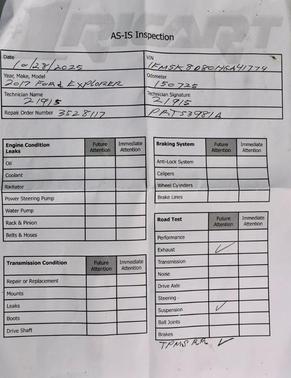 AS-IS Inspection
Date
10/28/2025
VIN
Year, Make, Model
2017 Ford EXPLORER
Odometer
150725
Technician Name
21915
Technician Signature
21915
Repair Order Number 3528117
PRT53981A
Engine Condition
Leaks
Future Attention
Immediate Attention
Oil
Coolant
Radiator
Power Steering Pump
Water Pump
Rack & Pinion
Belts & Hoses
Transmission Condition
Future Attention
Immediate Attention
Repair or Replacement
Mounts
Leaks
Boots
Drive Shaft
Braking System
Future Attention
Immediate Attention
Anti-Lock System
Calipers
Wheel Cylinders
Brake Lines
Road Test
Future Attention
Immediate Attention
Performance
Exhaust ✓
Transmission
Noise
Drive Axle
Steering
Suspension ✓
Ball Joints
Brakes
TPMS RR ✓